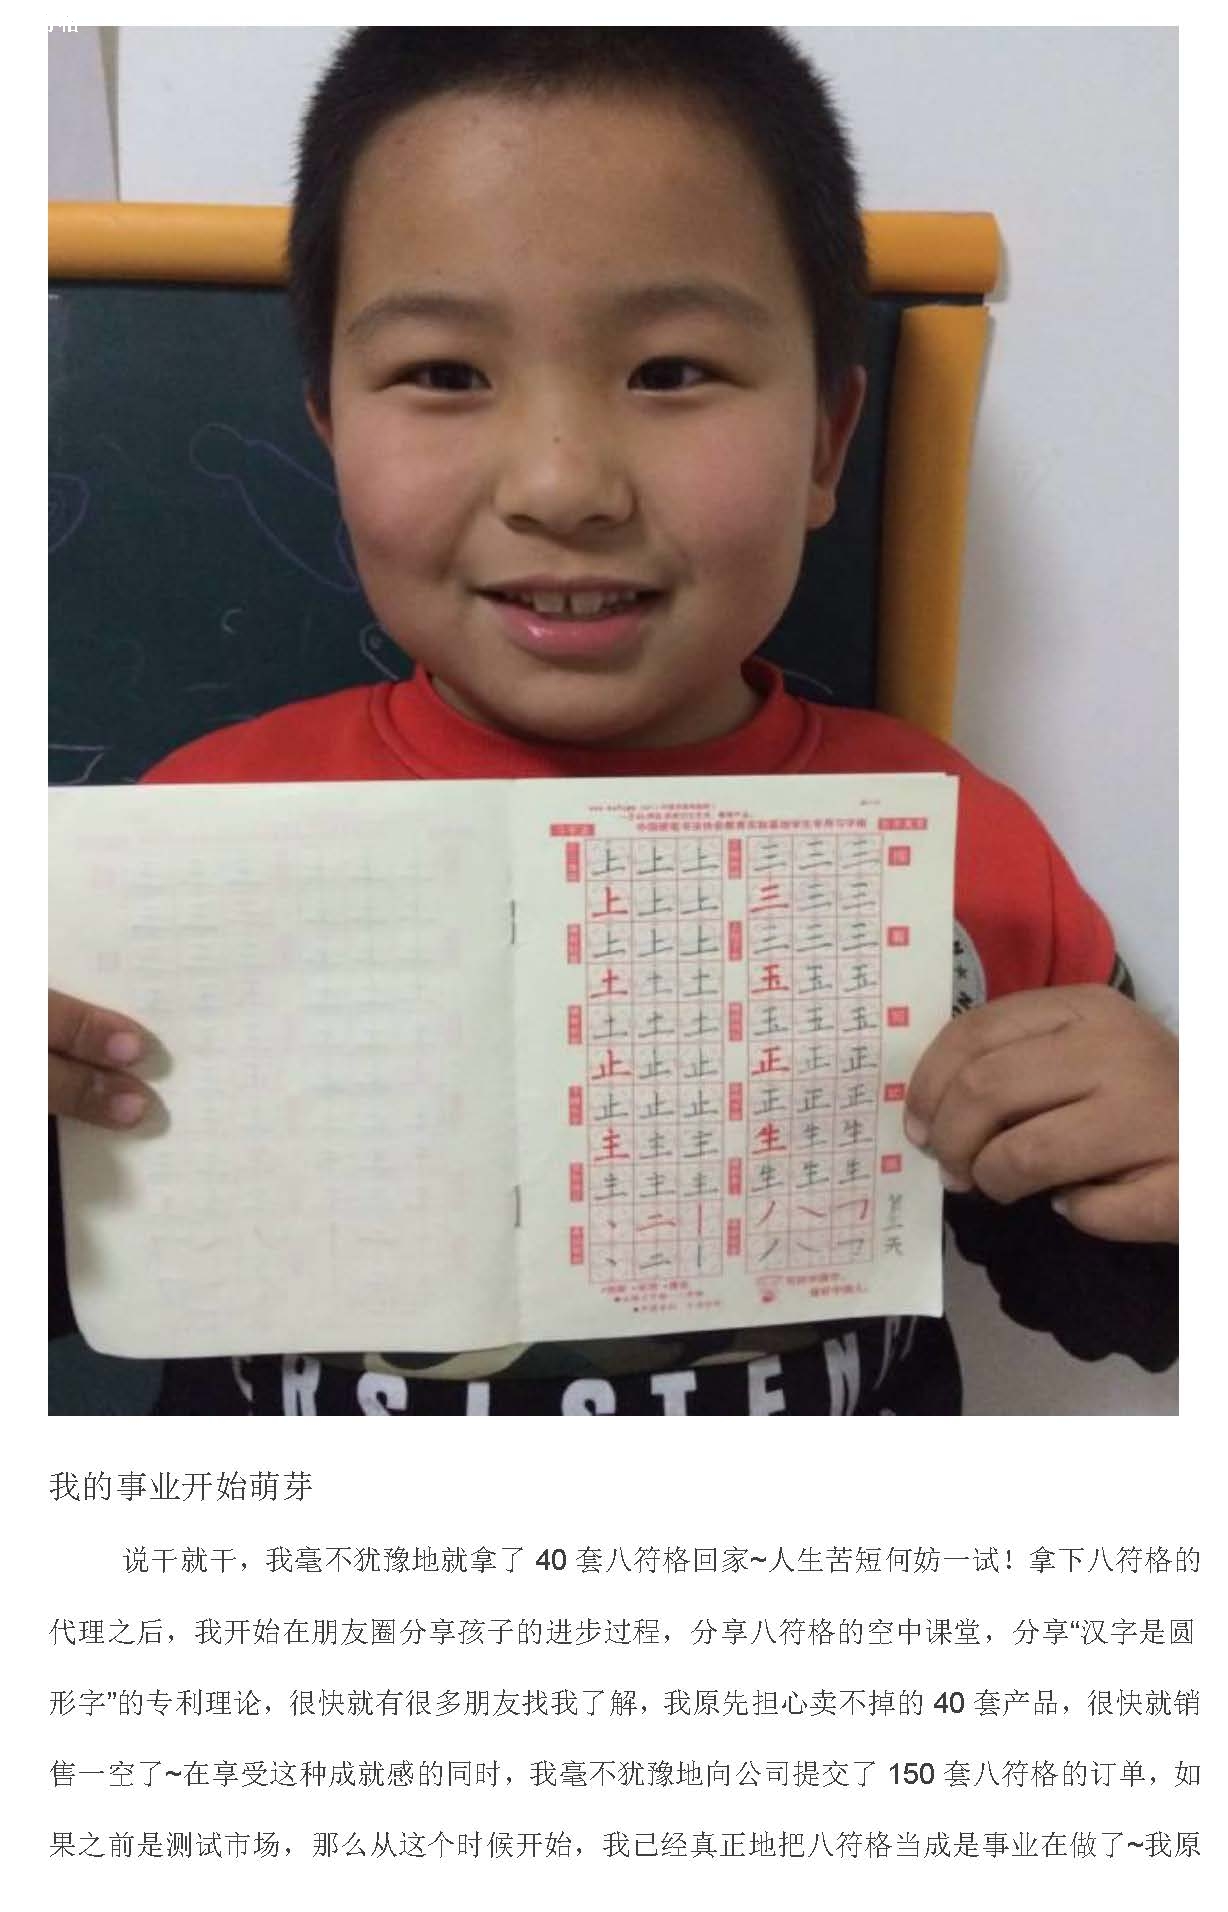 上 上 上 三 三 三
上 上 上 三 三 三
上 上 上 三 三 三
土 土 土 玉 五 五
土 土 土 玉 五 五
止 止 止 正 正 正
止 止 止 正 正 正
主 主 主 生 生 生
主 主 主 生 生 生
第一天
我的事业开始萌芽
说干就干，我毫不犹豫地就拿了 40 套八符格回家~人生苦短何妨一试！拿下八符格的
代理之后，我开始在朋友圈分享孩子的进步过程，分享八符格的空中课堂，分享“汉字是圆
形字”的专利理论，很快就有很多朋友找我了解，我原先担心卖不掉的 40 套产品，很快就销
售一空了~在享受这种成就感的同时，我毫不犹豫地向公司提交了 150 套八符格的订单，如
果之前是测试市场，那么从这个时候开始，我已经真正地把八符格当成是事业在做了~我原